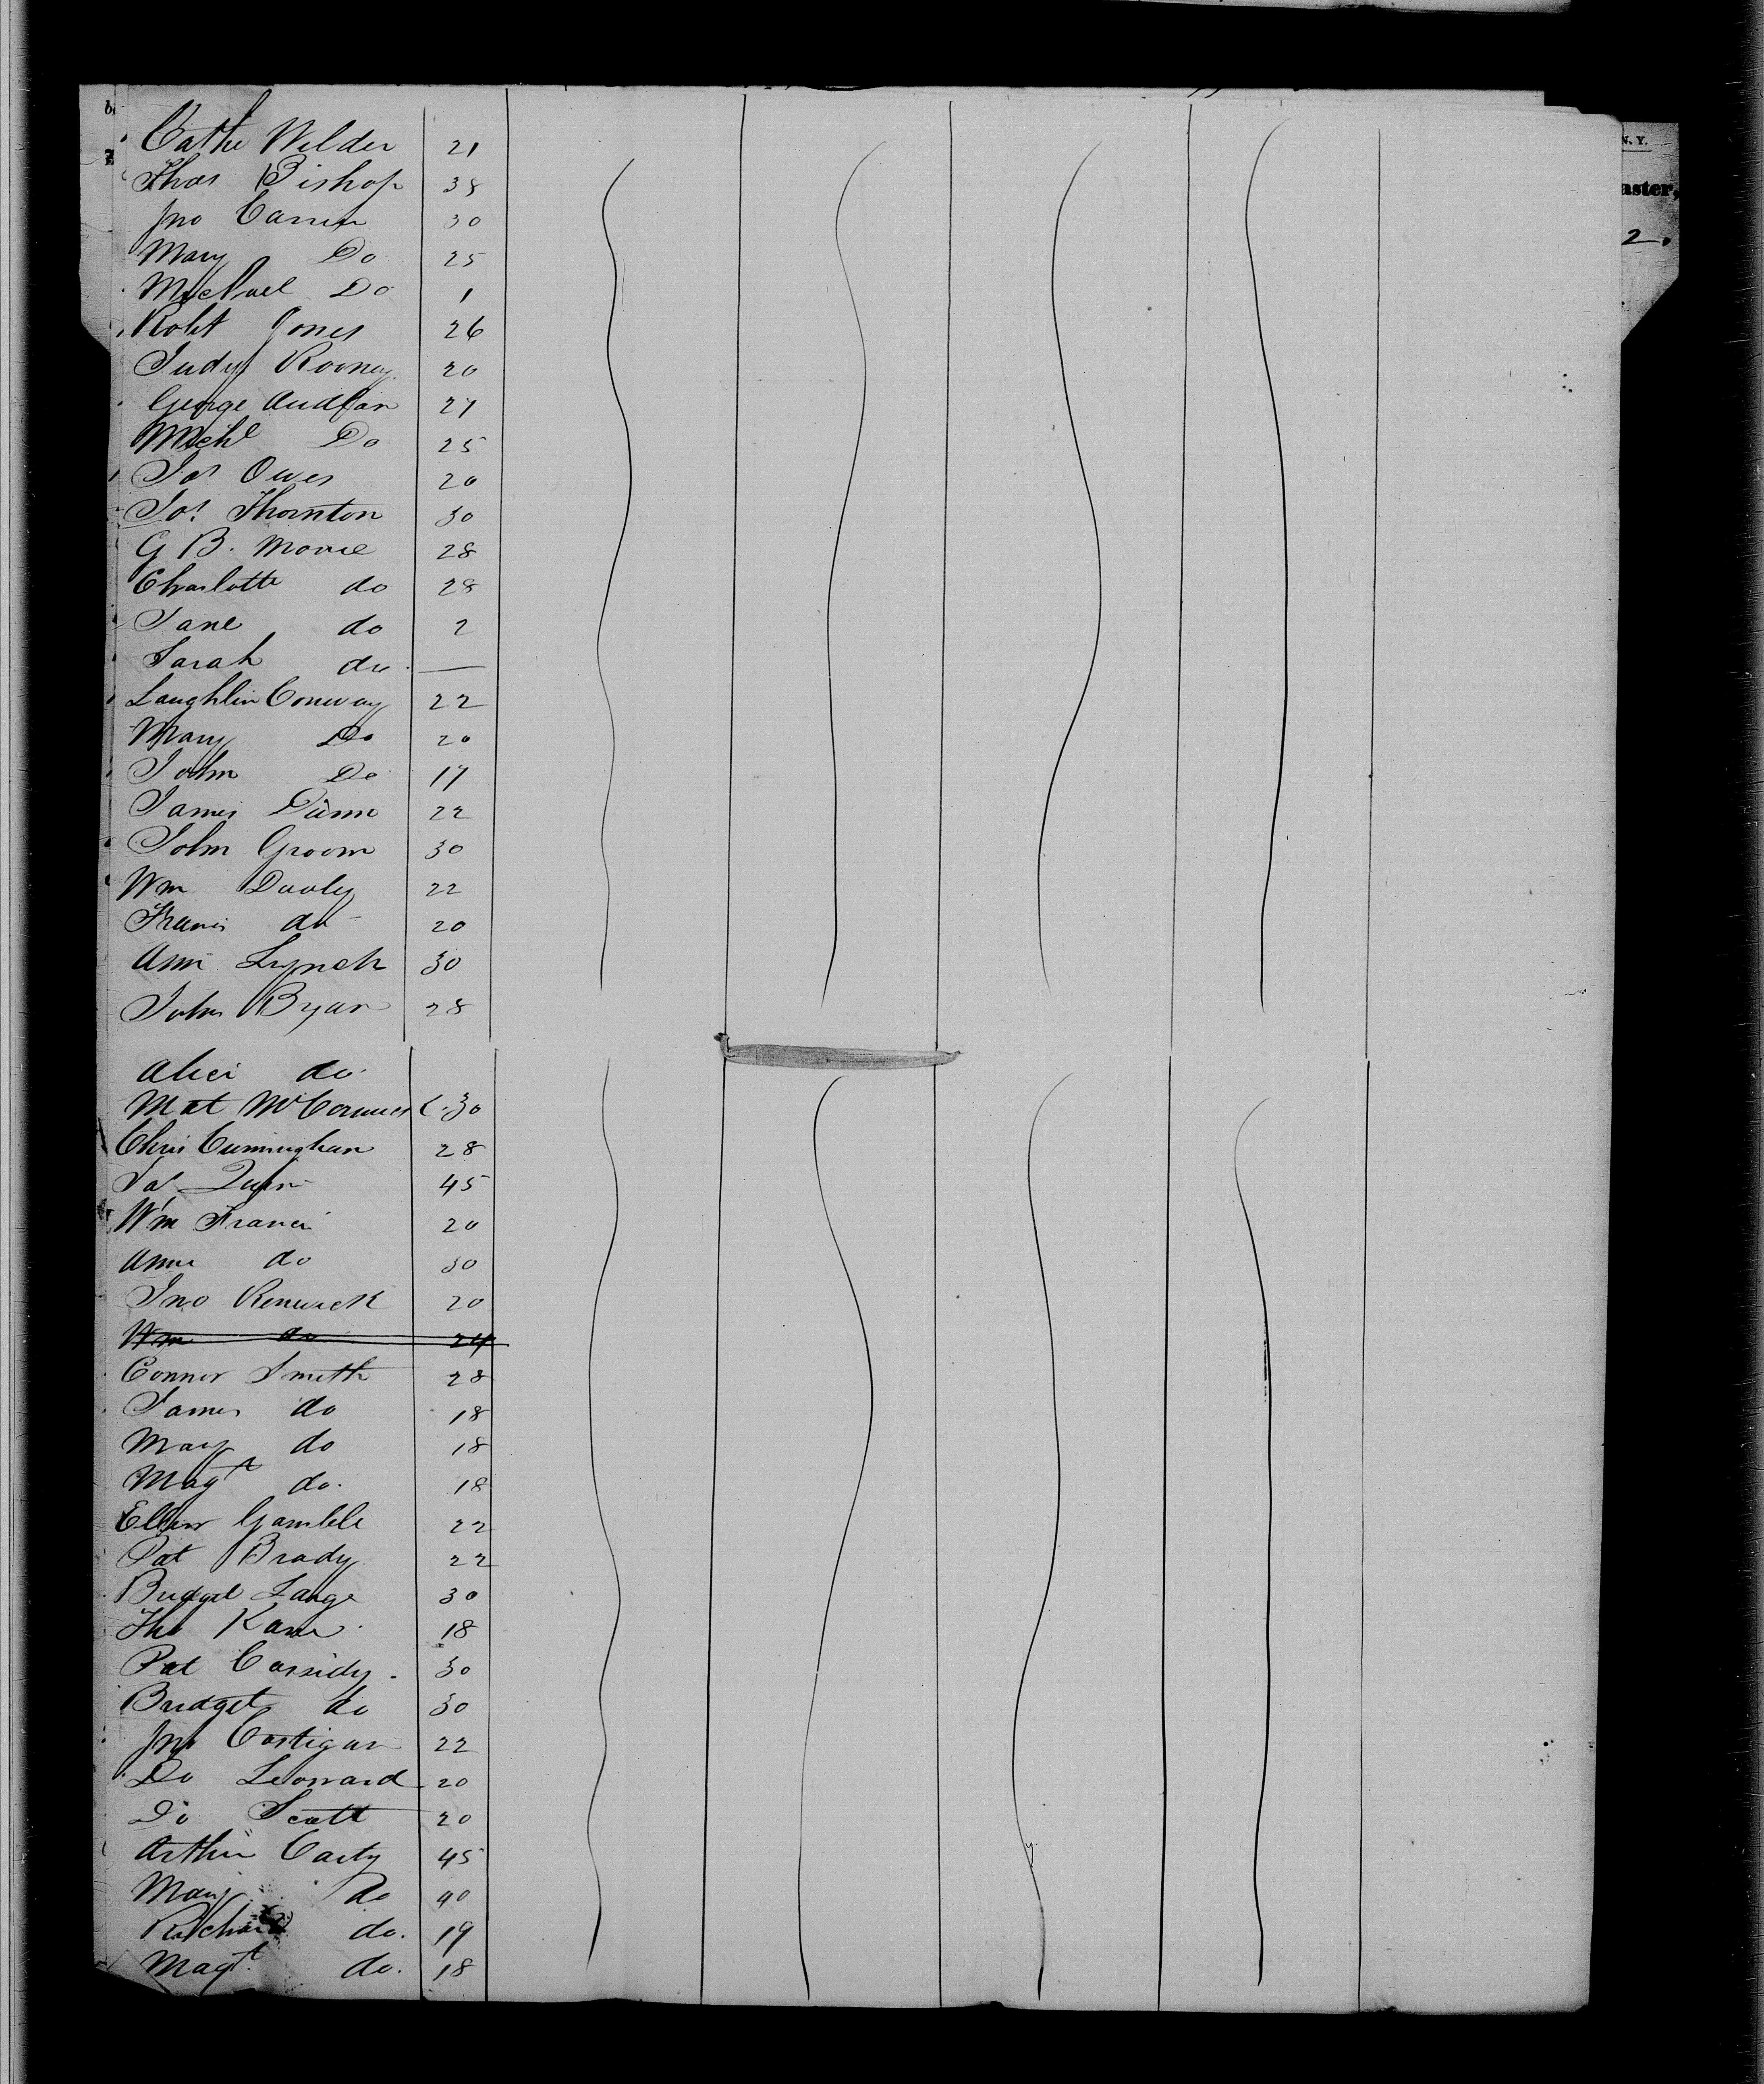 N.Y.
aster,
2.
Cathe Wilder 21
Thos Bishop 38
Jno 30
Mary Do 25
Michael Do 1
Robt Jones 26
Judy Rooney 20
George 27
Michl Do 25
Jas Owes 20
Jos. Thornton 30
G B. Moore 28
Charlotte do 28
Jane do 2
Sarah do —
Laughlin Conway 22
Mary Do 20
John Do 17
James Dunn 22
John Groom 30
Wm Dooly 22
Francis do 20
Ann Lynch 30
John Ryan 28
Alici do
Mat 30
Chris Cuningham 28
Jas Quin 45
Wm Francis 20
Anne do 30
Jno Renwick 20
Wm do 24
Connor Smith 28
James do 18
Mary do 18
Magt do. 18
Ellen Gamble 22
Pat Brady 22
Bridget Lange 30
Tho Kane 18
Pat Cassidy 30
Bridget do 30
Jno Costigan 22
Do Leonard 20
Do Scott 20
Arthur Carty 45
Mary do 40
Richard do. 19
Magt do. 18